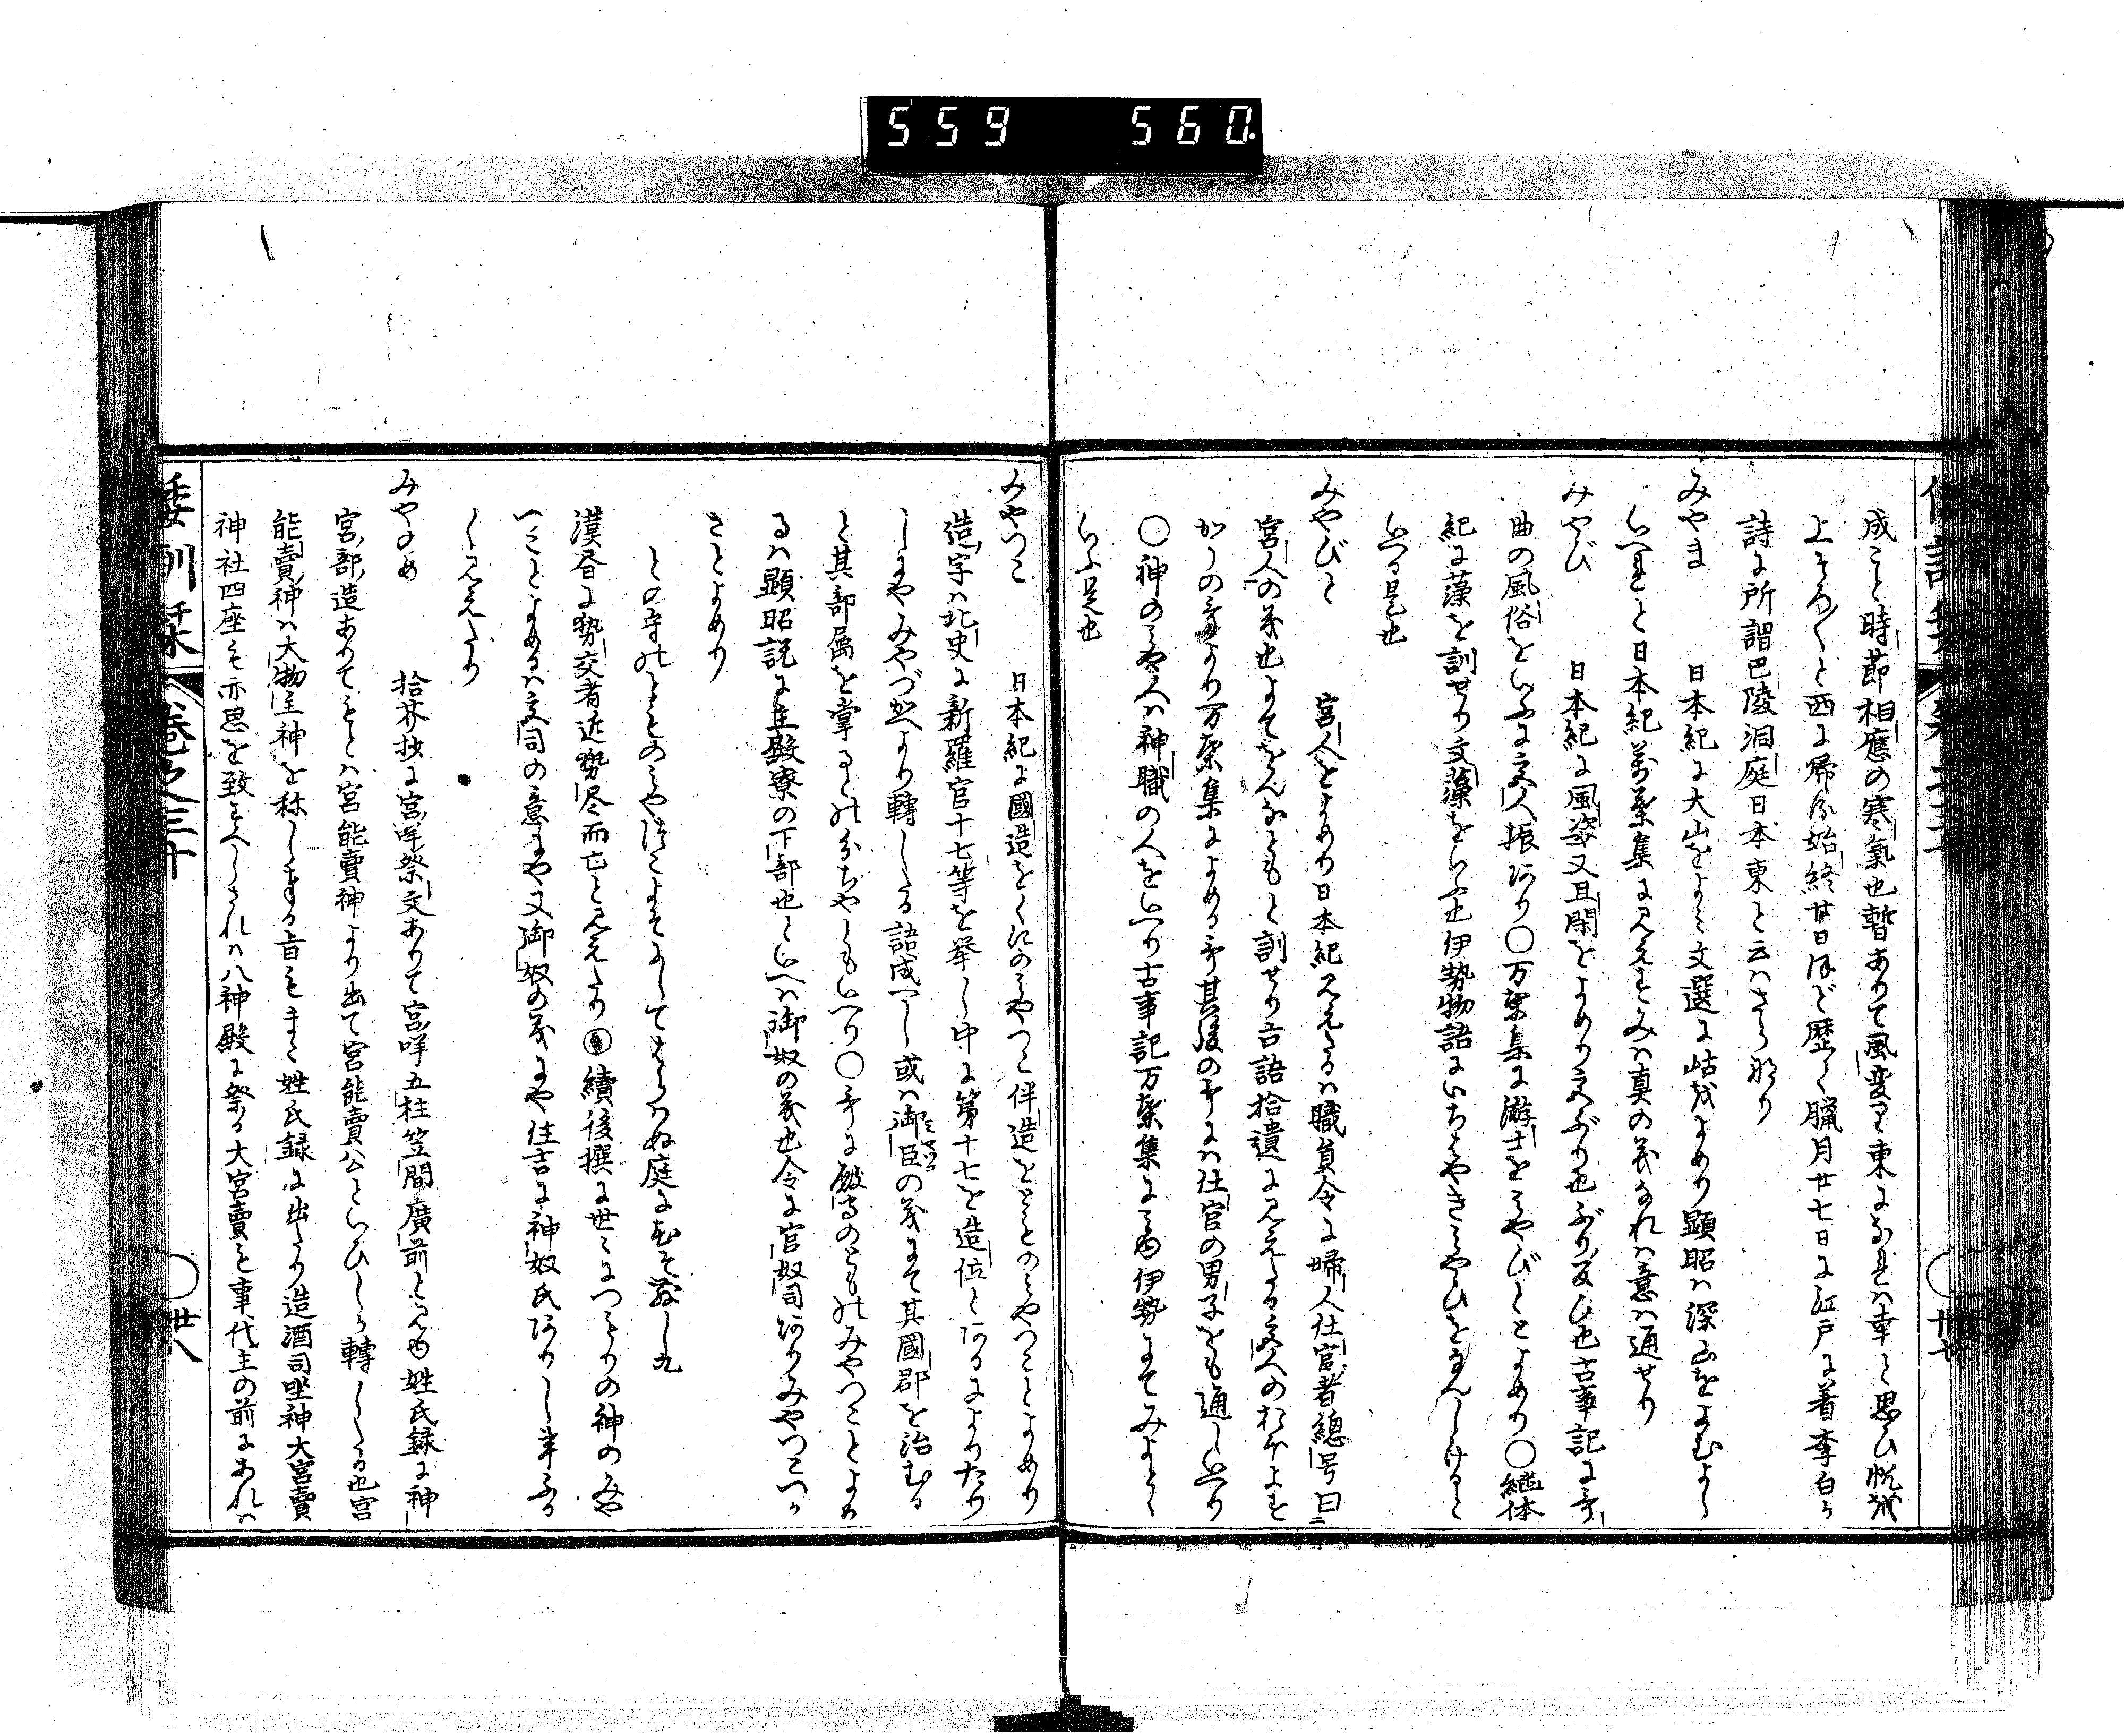 559 560
成こと時節相應の寒氣也暫ありて風変り東になれは幸と思ひ帆を
上そろ〱と西に帰ル始終廿日ほど歴て臘月廿七日に江戸に着李白か
詩に所謂巴陵洞庭日本東と云はさら也
みやま　日本紀に大山をよミ文選に岵をよめり顕昭は深山をよむよし
いへれと日本紀萬葉集に見えすみは真の義なれは意は通せり
みやび　日本紀に風姿又且閑をよめり文ぶり也ぶり反び也古事記に
曲の風俗をいふに文人振あり〇万葉集に游士をみやびとよめり〇継体
紀に藻を訓せり文藻をいふ也伊勢物語にいちはやきみやひをなんしけると
いへる是也
みやびと　宮人をよめり日本紀に見えたるは職員令に婦人仕官者總号曰
宮人の義也よてをんなともと訓せり古語拾遺に見えたる
かりの哥より万葉集によめる哥其後の哥には仕官の男子をも通しいへり
〇神のみや人は神職の人をいへり古事記万葉集に
いふ是也
みやつこ　日本紀に國造をくにのみやつこ伴造をとものみやつことよめり
造字は北史に新羅官十七等を挙し中に第十七を造位とあるによりたり
しにやみやづかへより轉したる語成へし或は御臣ミヤツコの義にて其國郡を治むる
と其部属を掌るとの分ちやしもいへり〇哥に殿守のとものみやつことよめ
るは顕昭説に主殿寮の下部也といへは御奴の義也令に官奴司ありみやつこいか
さとよめり
とのもりのとものみやつこよそにしてはらはぬ庭に花そ散しく
漢昏に勢交者近勢尽而亡と見えたり〇續後撰に世々につもりの神のみや
つことよめるは
しく見えたり
みやのめ　拾芥抄に宮咩祭文ありて宮咩五柱笠間廣前と見ゆ姓氏録に神
宮部造ありてもとは宮能賣神より出て宮能賣公といひしか轉したる也宮
能賣神は大物主神を称します旨もまた姓氏録に出たり造酒司坐神大宮賣
神社四座も亦思を致すへしされは八神殿に祭る大宮賣も事代主の前にあれは
倭訓栞　巻之三十　〇　卅八